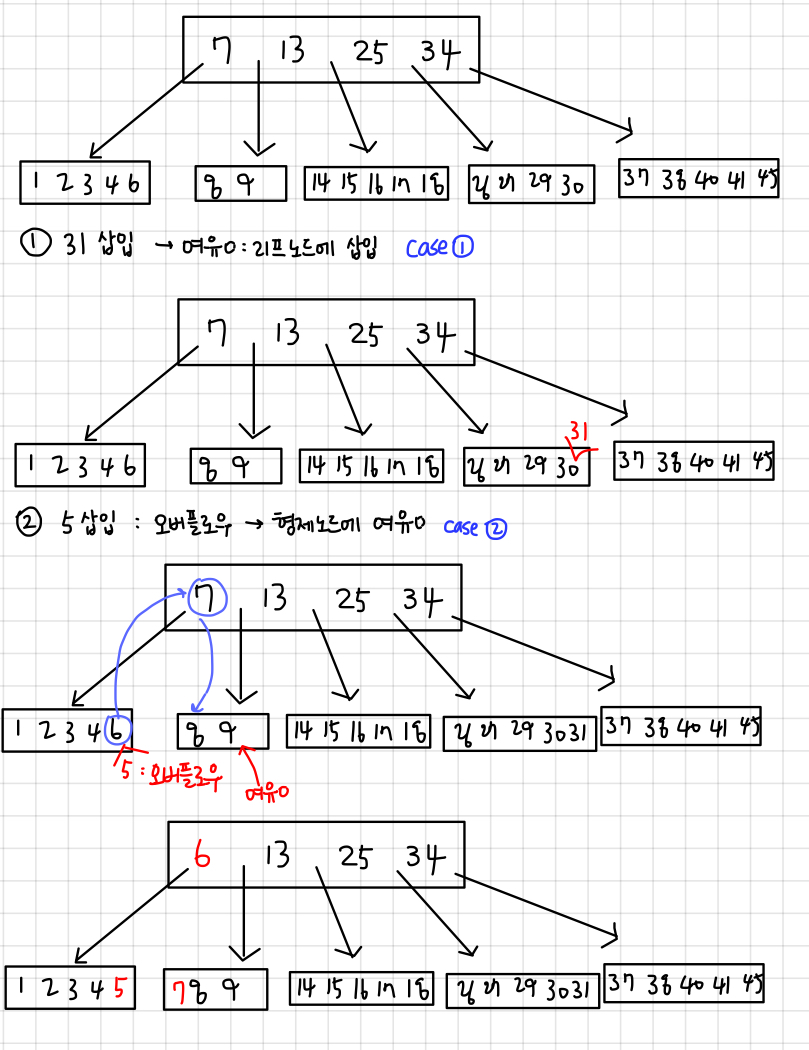 7 13 25 34
1 2 3 4 6 8 9 14 15 16 17 18 26 27 29 30 37 38 40 41 45
① 31 삽입 → 여유O : 리프노드에 삽입 case ①
7 13 25 34
31
1 2 3 4 6 8 9 14 15 16 17 18 26 27 29 30 37 38 40 41 45
② 5 삽입 : 오버플로우 → 형제노드에 여유O case ②
7 13 25 34
1 2 3 4 6 8 9 14 15 16 17 18 26 27 29 30 31 37 38 40 41 45
5 : 오버플로우 여유O
6 13 25 34
1 2 3 4 5 7 8 9 14 15 16 17 18 26 27 29 30 31 37 38 40 41 45